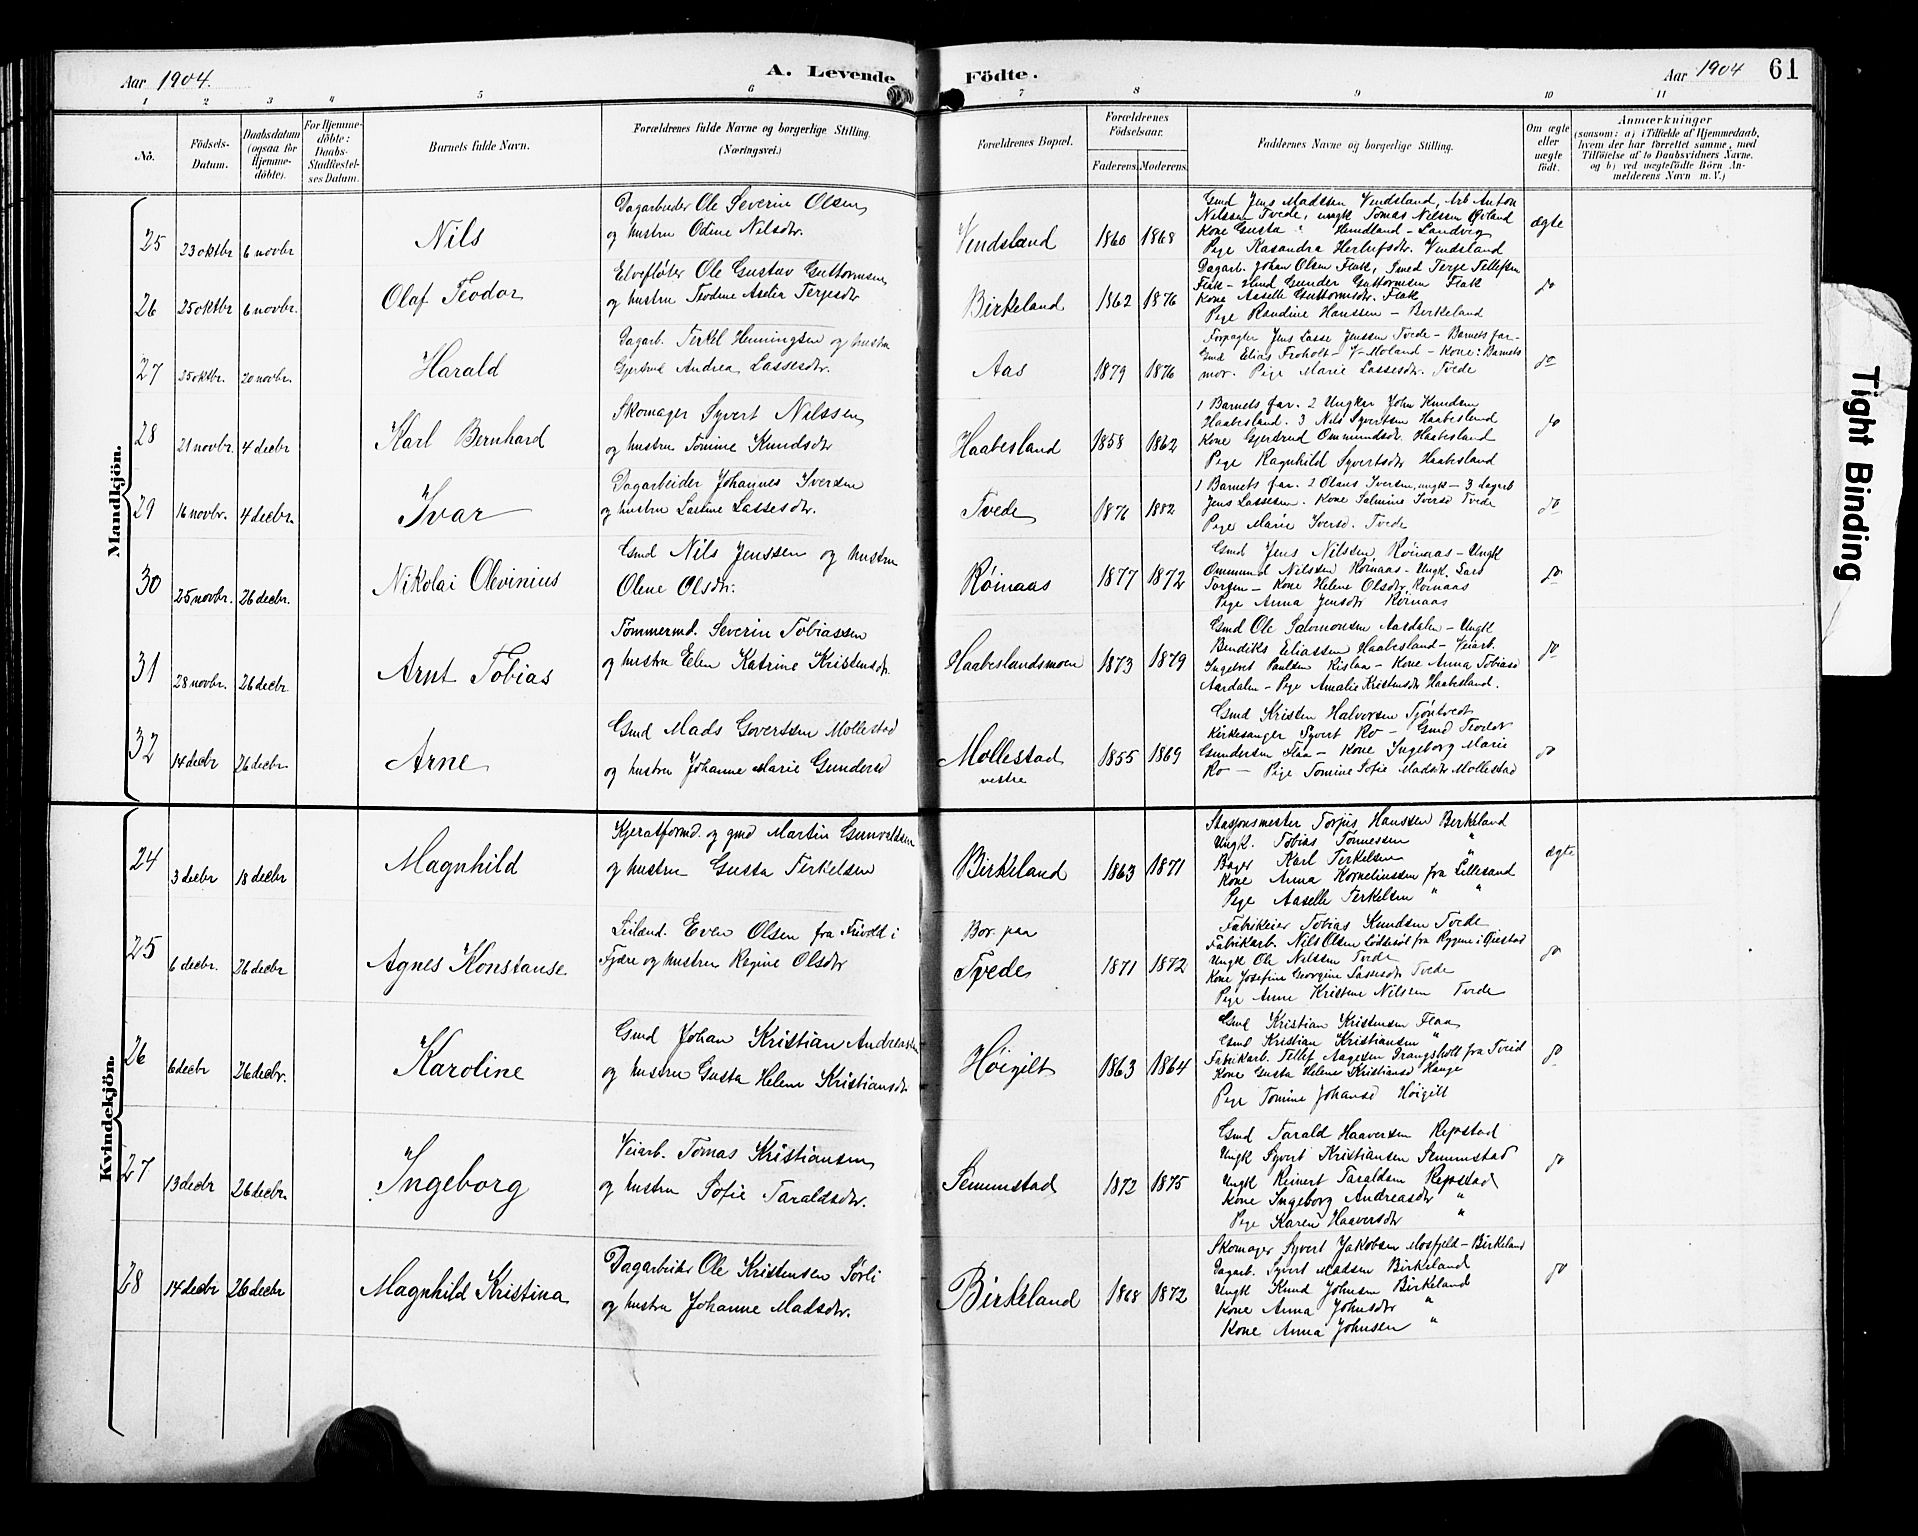 Aar 1904. A. Levende Födte. Aar 1904 61
1 2 3 4 5 6 7 8 9 10 11
No. Födsels-Datum. Daabsdatum (ogsaa for Hjemmedöbte). For Hjemmedöbte: Daabs-Stadfæstelses Datum. Barnets fulde Navn. Forældrenes fulde Navne og borgerlige Stilling. (Næringsvei.) Forældrenes Bopæl. Forældrenes Födselsaar. Faderens. Moderens. Faddernes Navne og borgerlige Stilling. Om ægte eller uægte födt. Anmærkninger (saasom: a) i Tilfælde af Hjemmedaab, hvem der har forrettet samme, med Tilföielse af to Daabsvidners Navne, og b) ved uægtefödte Börn Anmelderens Navn m. V.)
Mandkjön.
25 23 oktbr 6 novbr Nils
Dagarbeider Ole Severin Olsen
og hustru Odine Nilsdtr.
Vendsland 1860 1868
Gmd Jens Madssen Vendsland, Arb Anton
Nilssen Tvede, ungk Tomas Nilssen Øvland
Kone Gusta " Hundland - Landvig
Pige Kasandra Herlufsdtr. Vendsland
ægte
26 25 oktbr 6 novbr. Olaf Teodor
Elvefløter Ole Gustav Guttormsen
og hustru Teodine Aselia Terjesdtr
Birkeland 1862 1876
Dagarb. Johan Olsen Flak, Smed Terje Tellefsen
Flak - Gmd Gunder Guttormsen Flak
Kone Aaselle Guttormsdtr. Flak
Pige Randine Hanssen - Birkeland
do
27 25 oktbr. 20 novbr. Harald
Dagarb. Terkel Henningsen og hustru
Gjertrud Andrea Lassesdtr.
Aas 1879 1876
Forpagter Jens Lasse Jenssen Tvede - Barnets far -
Gmd Elias Froholt - V-Moland - Kone: Barnets
mor. Pige Marie Lassesdtr. Tvede
do
28 21 novbr. 4 decbr Karl Bernhard
Skomager Syvert Nilssen
og hustru Tomine Knudsdtr
Haabesland 1858 1862
1 Barnets far. 2 Ungkar John Knudsen
Haabesland. 3 Nils Syvertsen Haabesland
Kone Gjertrud Ommundsdtr. Haabesland
Pige Ragnhild Syvertsdtr Haabesland
do
29 16 novbr. 4 decbr. Ivar
Dagarbeider Johannes Iversen
og hustru Lastine Lassesdtr.
Tvede 1876 1882
1 Barnets far. 2 Olaus Iversen, ungk - 3 dagarb
Jens Lassesen. Kone Salmine Iversd Tvede
Pige Marie Iversd. Tvede
do
30 25 novbr. 26 decbr. Nikolai Olevinius
Gmd Nils Jenssen og hustru
Olene Olsdtr.
Røinaas 1877 1872
Gmd Jens Nilssen Røinaas - Ungk
Ommund Nilssen Røinaas - Ungk. Lars
- Kone Helene Olsdtr, Røinaas
Pige Anna Jensdtr Røinaas
do
31 28 novbr. 26 decbr. Arnt Tobias
Tømmermd. Severin Tobiassen
og hustru Elen Katrine Kristensdtr.
Haabeslandsmoen 1873 1879
Gmd Ole Salvmonsen Aardalen - Ungk
Bendiks Eliassen Haabesland - Veiarb.
Ingebret Paulsen Rislaa - Kone Anna Tobiasd
Aardalen - Pige Amalie Kristensdtr Haabesland.
do
32 14 decbr 26 decbr. Arne
Gmd Mads Govertssen Mollestad
og hustru Johanne Marie Gundersd
Mollestad vestre 1855 1869
Gmd Kristen Halvorsen Tjøntvedt
Kirkesanger Syvert Ro - Gmd Teodor
Gundersen Flaa - Kone Ingeborg Marie
Ro - Pige Tomine Sofie Madsdtr Mollestad
do
Kvindekjön.
24 3 decbr 18 decbr Magnhild
Kjeratformd. og gmd Martin Gunvaldsen
og hustru Gusta Terkelsen
Birkeland 1863 1871
Stasjonsmester Torjus Hanssen Birkeland
Ungk. Tobias Tønnessen "
Bager Karl Terkelsen "
Kone Anna Korneliussen fra Lillesand
Pige Aaselle Terkelsen " "
ægte
25 6 decbr. 26 decbr Agnes Konstanse
Leilænd. Even Olsen fra Frivold i
Fjære og hustru Regine Olsdtr
Bor paa Tvede 1871 1872
Fabrikeier Tobias Knudsen Tvede
Fabrikarb. Nils Olsen Løddesøl fra Rygene i Øiestad
Ungk Ole Nilssen Tvede
Kone Josefine Georgine Lassesdtr Tvede
Pige Anne Kristene Nilssen Tvede
do
26 6 decbr 26 decbr. Karoline
Gmd Johan Kristian Andreassen
og hustru Gusta Helene Kristiansdtr.
Høigilt 1863 1864
Gmd Kristian Kristensen Flaa
Gmd Kristian Kristiansen "
Fabrikarb. Tellef Aagesen Drangsholt fra Tveid
Kone Gusta Helene Kristiansd Hauge
Pige Tomine Johansd Høigilt
do
27 13 decbr 26 decbr. Ingeborg
Veiarb. Tomas Kristiansen
og hustru Sofie Taraldsdtr.
Senumstad 1872 1875
Gmd Tarald Haaversen Repstad
Ungk Syvert Kristiansen Senumstad
Ungk Reinert Taraldsen Repstad
Kone Ingeborg Andreasdtr "
Pige Karen Haaversdtr "
do
28 14 decbr 26 decbr Magnhild Kristina
Dagarbeider Ole Kristensen Sørli
og hustru Johanne Madsdtr.
Birkeland 1868 1872
Skomager Syvert Jakobsen Mosfjeld - Birkeland
Dagarb. Syvert Madssen Birkeland
Ungk Knud Johnsen Birkeland
Kone Anna Johnsdtr "
Kone Anna Johnsen "
do
Tight Binding